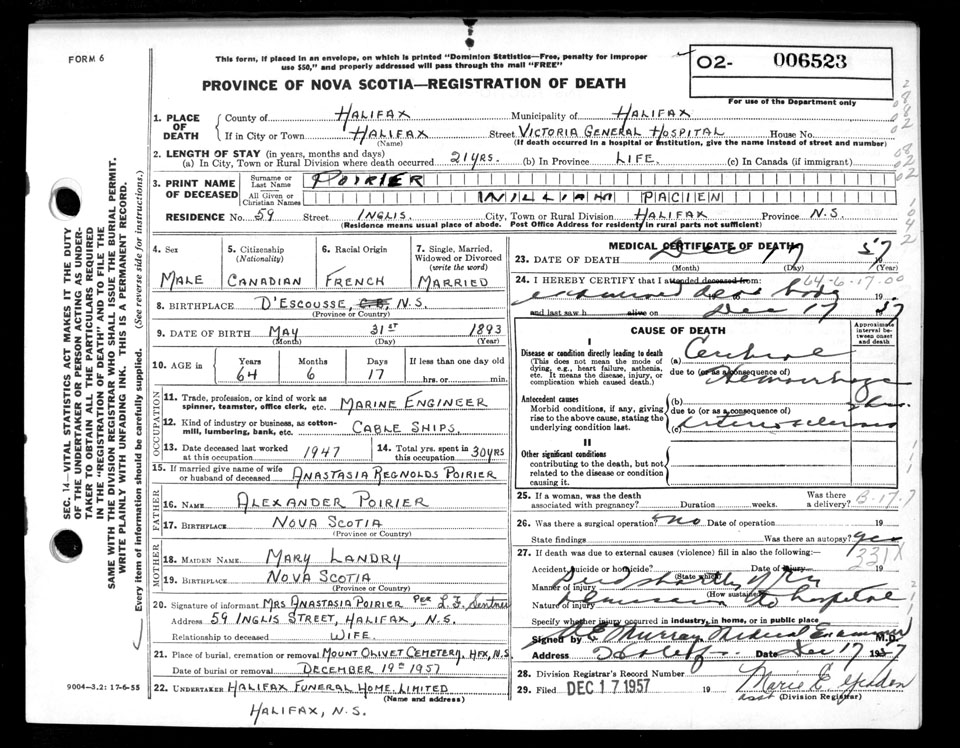 FORM 6
This form, if placed in an envelope, on which is printed "Dominion Statistics—Free, penalty for improper
use $50," and properly addressed will pass through the mail "FREE"
PROVINCE OF NOVA SCOTIA—REGISTRATION OF DEATH
O2- 006523
For use of the Department only
1. PLACE OF DEATH
County of HALIFAX Municipality of HALIFAX
If in City or Town HALIFAX Street VICTORIA GENERAL HOSPITAL House No.
(Name) (If death occurred in a hospital or institution, give the name instead of street and number)
2. LENGTH OF STAY (in years, months and days)
(a) In City, Town or Rural Division where death occurred 21 YRS. (b) In Province LIFE. (c) In Canada (if immigrant)
3. PRINT NAME OF DECEASED
Surname or Last Name POIRIER
All Given or Christian Names WILLIAM PACIEN
RESIDENCE No. 59 Street INGLIS. City, Town or Rural Division HALIFAX Province N.S.
(Residence means usual place of abode. Post Office Address for residents in rural parts not sufficient)
4. Sex MALE
5. Citizenship (Nationality) CANADIAN
6. Racial Origin FRENCH
7. Single, Married, Widowed or Divorced (write the word) MARRIED
8. BIRTHPLACE D'ESCOUSSE, C.B. N.S.
(Province or Country)
9. DATE OF BIRTH MAY 31ST 1893
(Month) (Day) (Year)
10. AGE in Years 64 Months 6 Days 17 If less than one day old
hrs. or min.
OCCUPATION
11. Trade, profession, or kind of work as
spinner, teamster, office clerk, etc. MARINE ENGINEER
12. Kind of industry or business, as cotton-
mill, lumbering, bank, etc. CABLE SHIPS.
13. Date deceased last worked at this occupation 1947
14. Total yrs. spent in this occupation 30 YRS
15. If married give name of wife
or husband of deceased ANASTASIA REGNOLDS POIRIER
FATHER
16. NAME ALEXANDER POIRIER
17. BIRTHPLACE NOVA SCOTIA
(Province or Country)
MOTHER
18. MAIDEN NAME MARY LANDRY
19. BIRTHPLACE NOVA SCOTIA
(Province or Country)
20. Signature of informant MRS ANASTASIA POIRIER PER L.F. Sentner
Address 59 INGLIS STREET, HALIFAX, N.S.
Relationship to deceased WIFE.
21. Place of burial, cremation or removal MOUNT OLIVET CEMETERY, HFX, N.S.
Date of burial or removal DECEMBER 19TH 1957
22. UNDERTAKER HALIFAX FUNERAL HOME. LIMITED
(Name and address)
HALIFAX, N.S.
9004—3.2: 17-6-55
MEDICAL CERTIFICATE OF DEATH
23. DATE OF DEATH Dec 17 57
(Month) (Day) (Year)
24. I HEREBY CERTIFY that I attended deceased from: 64-6-17.00
examined dead body 19
and last saw h alive on Dec 17 57
CAUSE OF DEATH
Approximate interval between onset and death
I
Disease or condition directly leading to death
(This does not mean the mode of
dying, e.g., heart failure, asthenia,
etc. It means the disease, injury, or
complication which caused death.)
(a) Cerebral
due to (or as a consequence of)
Hemorrhage
Antecedent causes
Morbid conditions, if any, giving
rise to the above cause, stating the
underlying condition last.
(b)
due to (or as a consequence of)
(c) Arteriosclerosis
II
Other significant conditions
contributing to the death, but not
related to the disease or condition
causing it.
25. If a woman, was the death
associated with pregnancy? Duration weeks. Was there a delivery? B-17-7
26. Was there a surgical operation? no Date of operation 19
State findings Was there an autopsy? yes
27. If death was due to external causes (violence) fill in also the following:— 331X
Accident, suicide or homicide? Date of injury 19
(State which)
Manner of injury Died shortly after
(How sustained)
Nature of injury admission to hospital
Specify whether injury occurred in industry, in home, or in public place
Signed by Murray Medical Examiner M.D.
Address Halifax Date Dec 17 1957
28. Division Registrar's Record Number
29. Filed DEC 17 1957 19 Marie E.
asst (Division Registrar)
SEC. 14—VITAL STATISTICS ACT MAKES IT THE DUTY
OF THE UNDERTAKER OR PERSON ACTING AS UNDER-
TAKER TO OBTAIN ALL THE PARTICULARS REQUIRED
IN THE "REGISTRATION OF DEATH" AND TO FILE THE
SAME WITH THE DIVISION REGISTRAR WHO SHALL ISSUE THE BURIAL PERMIT.
WRITE PLAINLY WITH UNFADING INK. THIS IS A PERMANENT RECORD.
Every item of information should be carefully supplied. (See reverse side for instructions.)